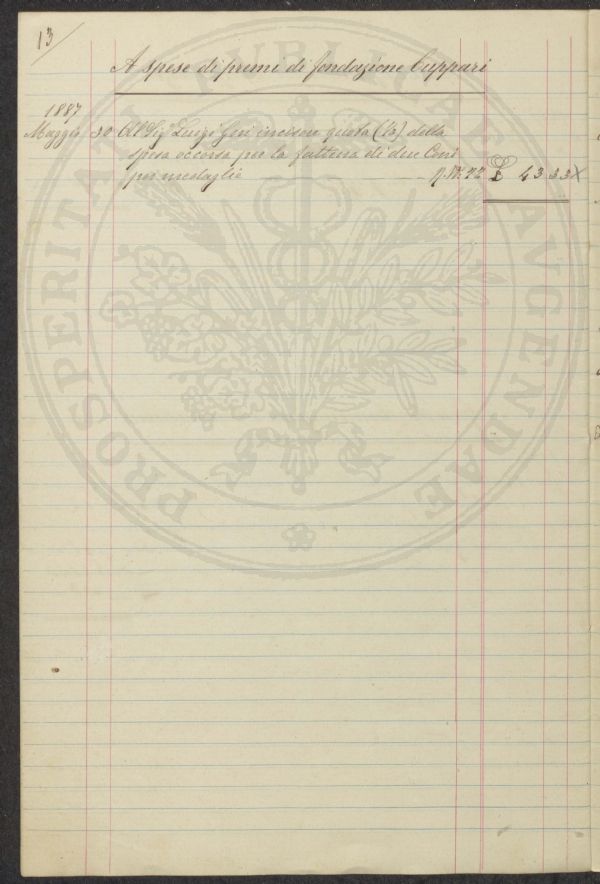 13
A spese di premi di fondazione Cuppari
1887
Maggio 30 Al Sigr Luigi incisore quota (1/3) della
spesa occorsa per la fattura di due Coni
per medaglie £ 43 33
PROSPERITATI PUBLICAE AUGENDAE